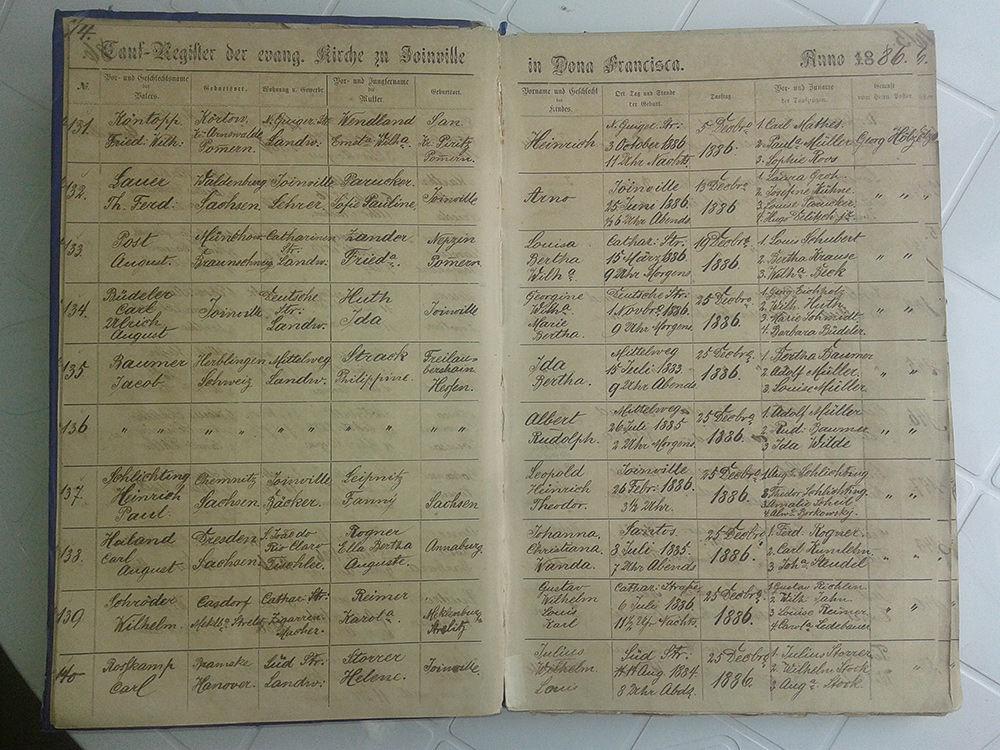 74.
Tauf-Register der evang. Kirche zu Joinville
in Dona Francisca.
Anno 1886.
№
Vor- und Geschlechtsname
des
Vaters.
Geburtsort.
Wohnung u. Gewerbe.
Vor- und Jungfername
der
Mutter
Geburtsort.
Vorname und Geschlecht
des
Kindes.
Ort, Tag und Stunde
der Geburt.
Tauftag.
Vor- und Zuname
der Taufzeugen.
Getauft
vom Herrn Pastor
131
Köntopp
Fried: Wilh:
Körtow
Kr. Arnswalde
Pomern.
N. Guiger Str:
Landw:
Wendland
Ernstª Wilhª
San
Kr. Piritz
Pomern.
Heinrich
N. Guiger Str:
3 October 1886
11 Uhr Nachts
5 Decbrª
1886
1. Carl Mathes
2. Paulª Müller
3. Sophie Roos
Georg Hölzel
132.
Lauer
Th. Ferd:
Waldenburg
Sachsen
Joinville
Lehrer.
Parucker.
Sofie Pauline.
Joinville
Arno
Joinville
25 Juni 1886
½6 Uhr Abends
13 Decbrª
1886
1. Laura Groh
2. Josefine Kühne
3. Louise Parucker
4. Hugo Delitsch jr.
" "
133
Post
August.
Münchow
Braunschweig
Catharinen
Str:
Landw:
Zander
Friedª.
Nepzin
Pomern
Louisa
Bertha
Wilhª
Cathar. Str:
15 März 1886
9 Uhr Morgens
19 Decbrª
1886.
1. Louis Schubert
2. Bertha Krause
3. Wilhª Beck
" "
134.
Büdeler
Carl
Ulrich
August
Joinville
Deutsche
Str:
Landw:
Huth
Ida
Joinville
Georgine
Wilhª
Marie
Bertha.
Deutsche Str:
1 Novbrª 1886.
9 Uhr Morgens
25 Decbrª
1886.
1. Georg Eichholz
2. Wilh. Huth
3. Marie Schmidt
4. Barbara Büdeler.
" "
135
Baumer
Jacob
Herblingen
Schweiz
Mittelweg
Landw:
Strack
Philippine.
Freilau-
bersheim
Hessen.
Ida
Bertha.
Mittelweg
15 Juli 1883.
9 Uhr Abends
25 Decbrª
1886.
1. Bertha Baumer
2. Adolf Müller.
3. Louise Müller
" "
136
" " " " " " " " " "
Albert
Rudolph.
Mittelweg
26 Juli 1885
2 Uhr Morgens
25 Decbrª
1886.
1. Adolf Müller
2. Rud: Baumer
3. Ida Wilde
" "
137.
Schlichting
Heinrich
Paul.
Chemnitz
Sachsen
Joinville
Bäcker.
Geipnitz
Fanny
Sachsen
Leopold
Heinrich
Theodor.
Joinville
26 Febr. 1886.
3½ Uhr.
25 Decbrª
1886.
1. Augª Schlichting
2. Theodor Schlichting
3. Amalie Scheil
4. Alwª Borkowsky.
" "
138.
Heiland
Carl
August
Dresden
Sachsen
S. João do
Rio Claro
Tischler.
Rogner
Ella Bertha
Auguste.
Annaburg.
Johanna,
Christiana
Wanda.
Santos
3 Juli 1885.
7 Uhr Abends
25 Decbrª
1886.
1. Ferd. Rogner.
2. Carl Kumlehn
3. Johª Staudel
" "
139
Schröder
Wilhelm.
Casdorf
Mekltbª Strelitz
Cathar. Str:
Zigarren-
Macher.
Reimer
Karolª
Meklenburg
Strelitz
Gustav
Wilhelm
Louis
Karl
Cathar. Straße
6 Juli 1886.
11½ Uhr Nachts
25 Decbrª
1886.
1. Gustav Richlin
2. Wilh. Jahn.
3. Louise Reimer
4. Carolª Ledebauer
" "
140
Roskamp
Carl
Hanover.
Süd Str:
Landw:
Storrer
Helene.
Joinville.
Julius
Wilhelm.
Louis
Süd Str:
14 Aug. 1884.
8 Uhr Abds.
25 Decbrª
1886.
1. Julius Storrer
2. Wilhelm Stock
3. Augª Stock.
" "